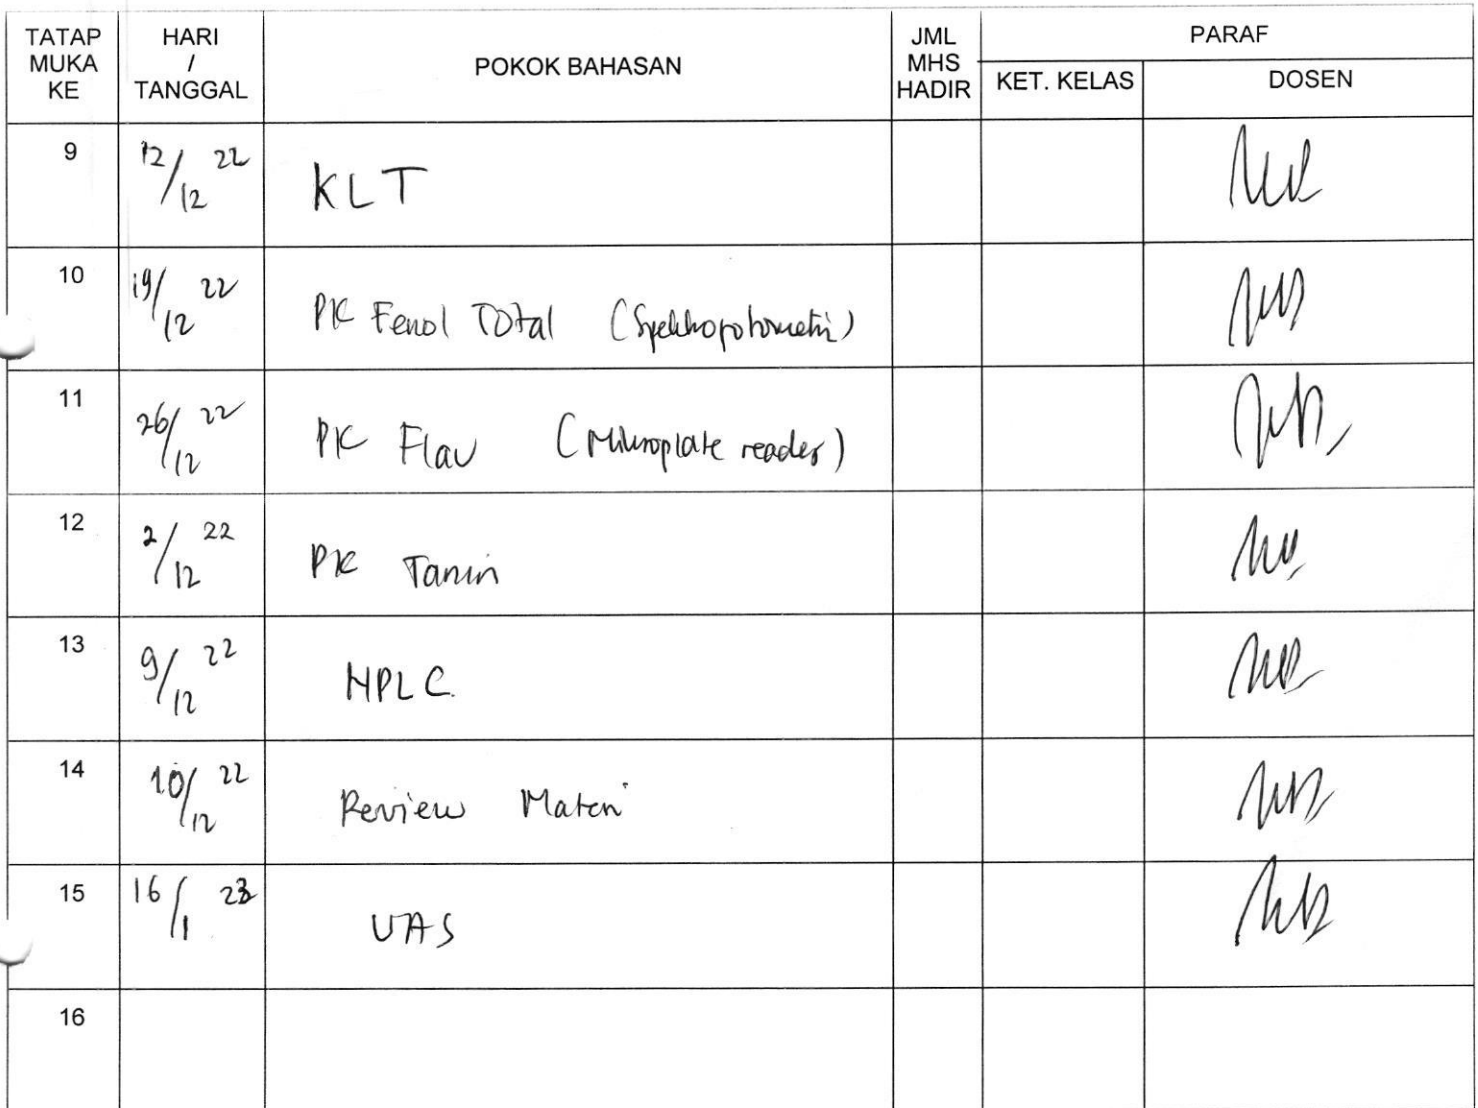 TATAP MUKA KE HARI / TANGGAL POKOK BAHASAN JML MHS HADIR PARAF
KET. KELAS DOSEN
9 12/12 22 KLT
10 19/12 22 PK Fenol Total (Spektrofotometri)
11 26/12 22 PK Flav (Mikroplate reader)
12 2/12 22 PK Tanin
13 9/12 22 HPLC
14 10/12 22 Review Materi
15 16/1 23 UAS
16